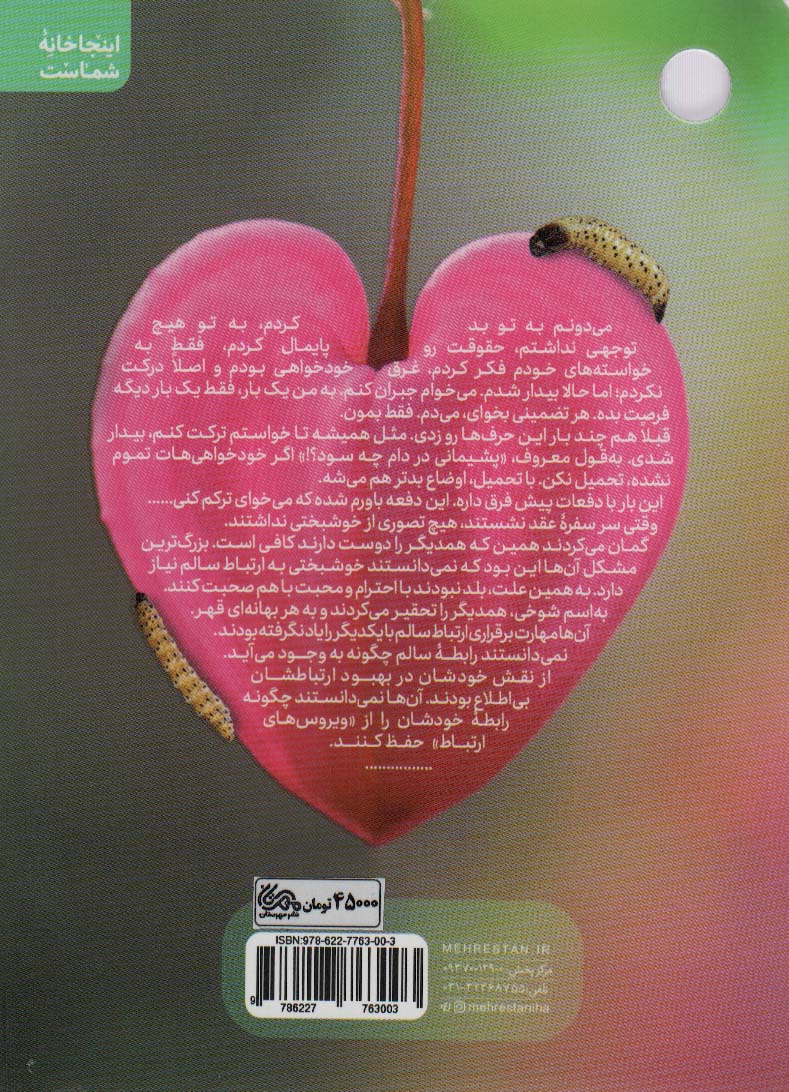 اینجا خانهٔ
شماست
می‌دونم به تو بد کردم، به تو هیچ
توجهی نداشتم، حقوقت رو پایمال کردم، فقط به
خواسته‌های خودم فکر کردم، غرق خودخواهی بودم و اصلاً درکت
نکردم؛ اما حالا بیدار شدم. می‌خوام جبران کنم. به من یک بار، فقط یک بار دیگه
فرصت بده. هر تضمینی بخوای، می‌دم. فقط بمون.
قبلاً هم چند بار این حرف‌ها رو زدی. مثل همیشه تا خواستم ترکت کنم، بیدار
شدی. به‌قول معروف، «پشیمانی در دام چه سود؟!» اگر خودخواهی‌هات تموم
نشده، تحمیل نکن. با تحمیل، اوضاع بدتر هم می‌شه.
این بار با دفعات پیش فرق داره. این دفعه باورم شده که می‌خوای ترکم کنی......
وقتی سر سفرهٔ عقد نشستند، هیچ تصوری از خوشبختی نداشتند.
گمان می‌کردند همین که همدیگر را دوست دارند کافی است. بزرگ‌ترین
مشکل آن‌ها این بود که نمی‌دانستند خوشبختی به ارتباط سالم نیاز
دارد. به همین علت، بلد نبودند با احترام و محبت با هم صحبت کنند.
به‌اسم شوخی، همدیگر را تحقیر می‌کردند و به هر بهانه‌ای قهر.
آن‌ها مهارت برقراری ارتباط سالم با یکدیگر را یاد نگرفته بودند.
نمی‌دانستند رابطهٔ سالم چگونه به وجود می‌آید.
از نقش خودشان در بهبود ارتباطشان
بی‌اطلاع بودند. آن‌ها نمی‌دانستند چگونه
رابطهٔ خودشان را از «ویروس‌های
ارتباط» حفظ کنند.
................
۴۵۰۰۰ تومان
نشر مهرستان
ISBN:978-622-7763-00-3
9 786227 763003
MEHRESTAN.IR
مرکز پخش: ۰۹۳۷۰۰۱۲۹۰۰
تلفن: ۰۳۱-۳۲۳۶۸۷۵۵
mehrestaniha